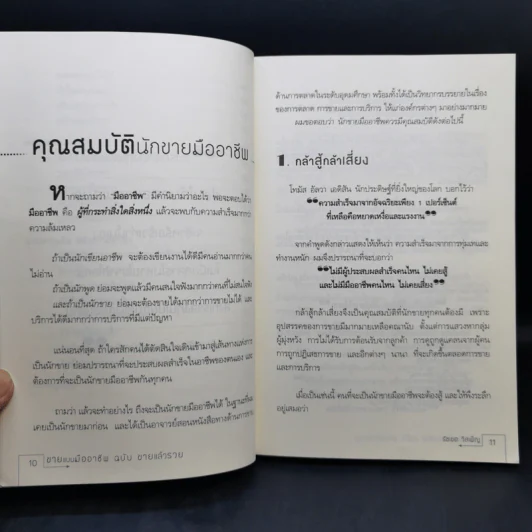 คุณสมบัตินักขายมืออาชีพ
หากจะถามว่า “มืออาชีพ” มีคำนิยามว่าอะไร พอจะตอบได้ว่า
มืออาชีพ คือ ผู้ที่กระทำสิ่งใดสิ่งหนึ่ง แล้วจะพบกับความสำเร็จมากกว่า
ความล้มเหลว
ถ้าเป็นนักเขียนอาชีพ จะต้องเขียนงานได้ดีมีคนอ่านมากกว่าคน
ไม่อ่าน
ถ้าเป็นนักพูด ย่อมจะพูดแล้วมีคนสนใจฟังมากกว่าคนที่ไม่สนใจฟัง
และถ้าเป็นนักขาย ย่อมจะต้องขายได้มากกว่าการขายไม่ได้ และ
บริการได้ดีมากกว่าการบริการที่มีแต่ปัญหา
แน่นอนที่สุด ถ้าใครสักคนได้ตัดสินใจเดินเข้ามาสู่เส้นทางแห่งการ
เป็นนักขาย ย่อมปรารถนาที่จะประสบผลสำเร็จในอาชีพของตนเอง และ
ต้องการที่จะเป็นนักขายมืออาชีพกันทุกคน
ถามว่า แล้วจะทำอย่างไร ถึงจะเป็นนักขายมืออาชีพได้ ในฐานะที่ผม
เคยเป็นนักขายมาก่อน และได้เป็นอาจารย์สอนหนังสือทางด้านการขาย
10 ขายแบบมืออาชีพ ฉบับ ขายแล้วรวย
ด้านการตลาดในระดับอุดมศึกษา พร้อมทั้งได้เป็นวิทยากรบรรยายในเรื่อง
ของการตลาด การขายและการบริการ ให้แก่องค์กรต่างๆ มาอย่างมากมาย
ผมขอตอบว่า นักขายมืออาชีพควรมีคุณสมบัติดังต่อไปนี้
1. กล้าสู้กล้าเสี่ยง
โทมัส อัลวา เอดิสัน นักประดิษฐ์ที่ยิ่งใหญ่ของโลก บอกไว้ว่า
“ความสำเร็จมาจากอัจฉริยะเพียง 1 เปอร์เซ็นต์
ที่เหลือคือหยาดเหงื่อและแรงงาน”
จากคำพูดดังกล่าวแสดงให้เห็นว่า ความสำเร็จมาจากการทุ่มเทและ
ทำงานหนัก ผมจึงปรารถนาที่จะบอกว่า
“ไม่มีผู้ประสบผลสำเร็จคนไหน ไม่เคยสู้
และไม่มีมืออาชีพคนไหน ไม่เคยเสี่ยง”
กล้าสู้กล้าเสี่ยงจึงเป็นคุณสมบัติที่นักขายทุกคนต้องมี เพราะ
อุปสรรคของการขายมีมากมายเหลือคณานับ ตั้งแต่การแสวงหากลุ่ม
ผู้มุ่งหวัง การไม่ได้รับการต้อนรับจากลูกค้า การดูถูกดูแคลนจากผู้คน
การถูกปฏิเสธการขาย และอีกต่างๆ นานา ที่จะเกิดขึ้นตลอดการขาย
และการบริการ
เมื่อเป็นเช่นนี้ คนที่จะเป็นนักขายมืออาชีพจะต้องสู้ และให้พึงระลึก
อยู่เสมอว่า
11